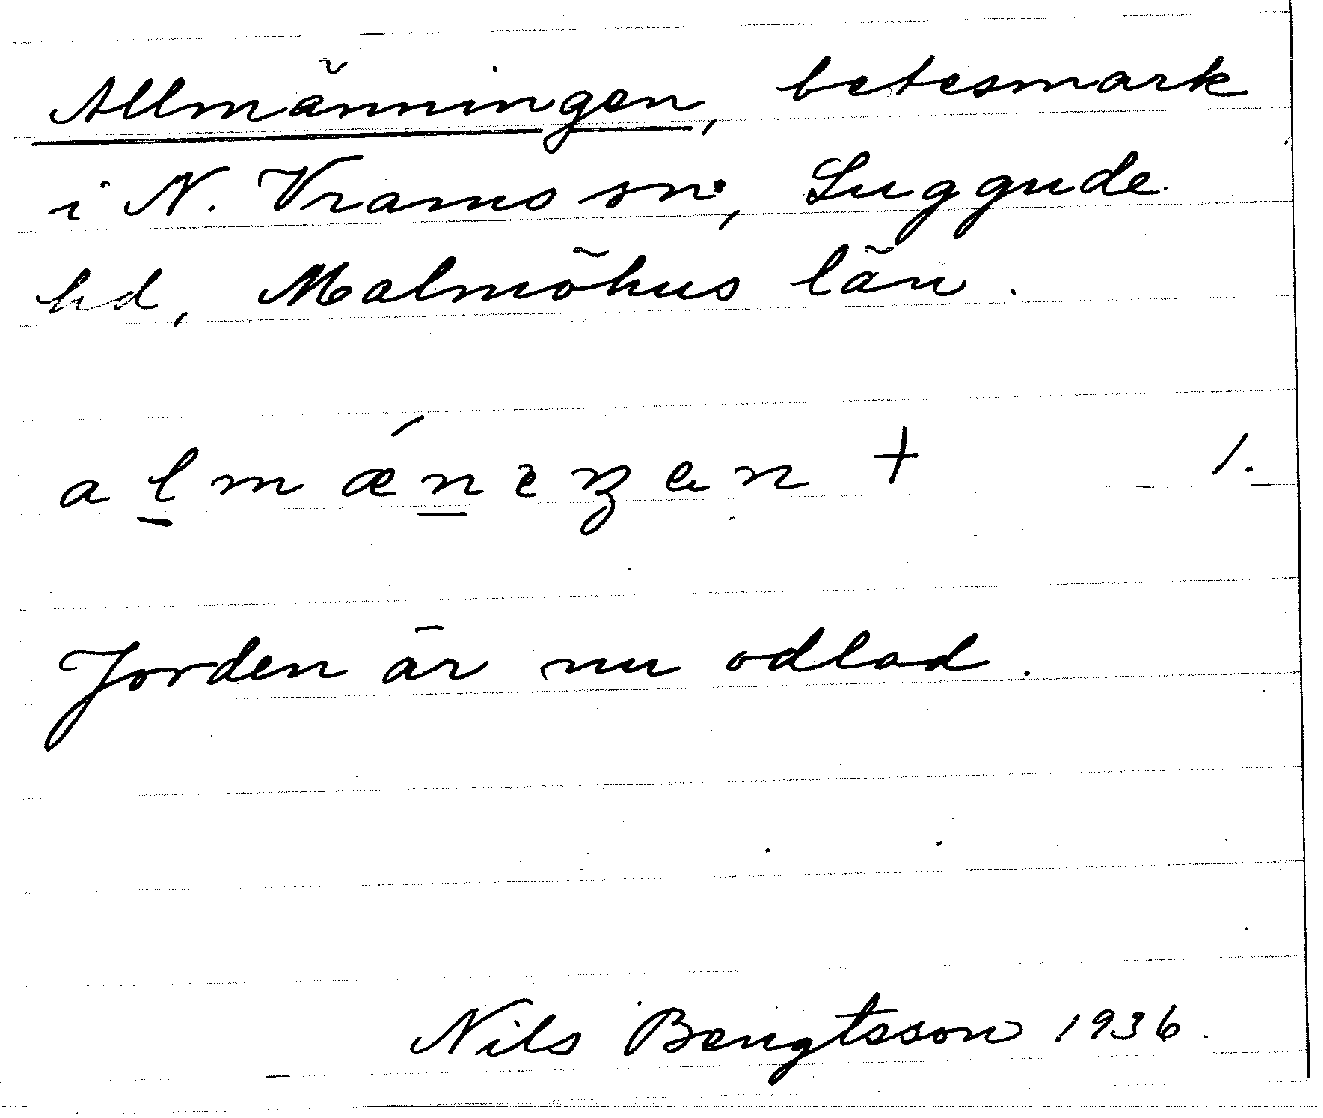 Allmänningen, betesmark
i N. Vrams sn, Luggude
hd, Malmöhus län.
almǽnıŋen + 1.
Jorden är nu odlad.
Nils Bengtsson 1936.